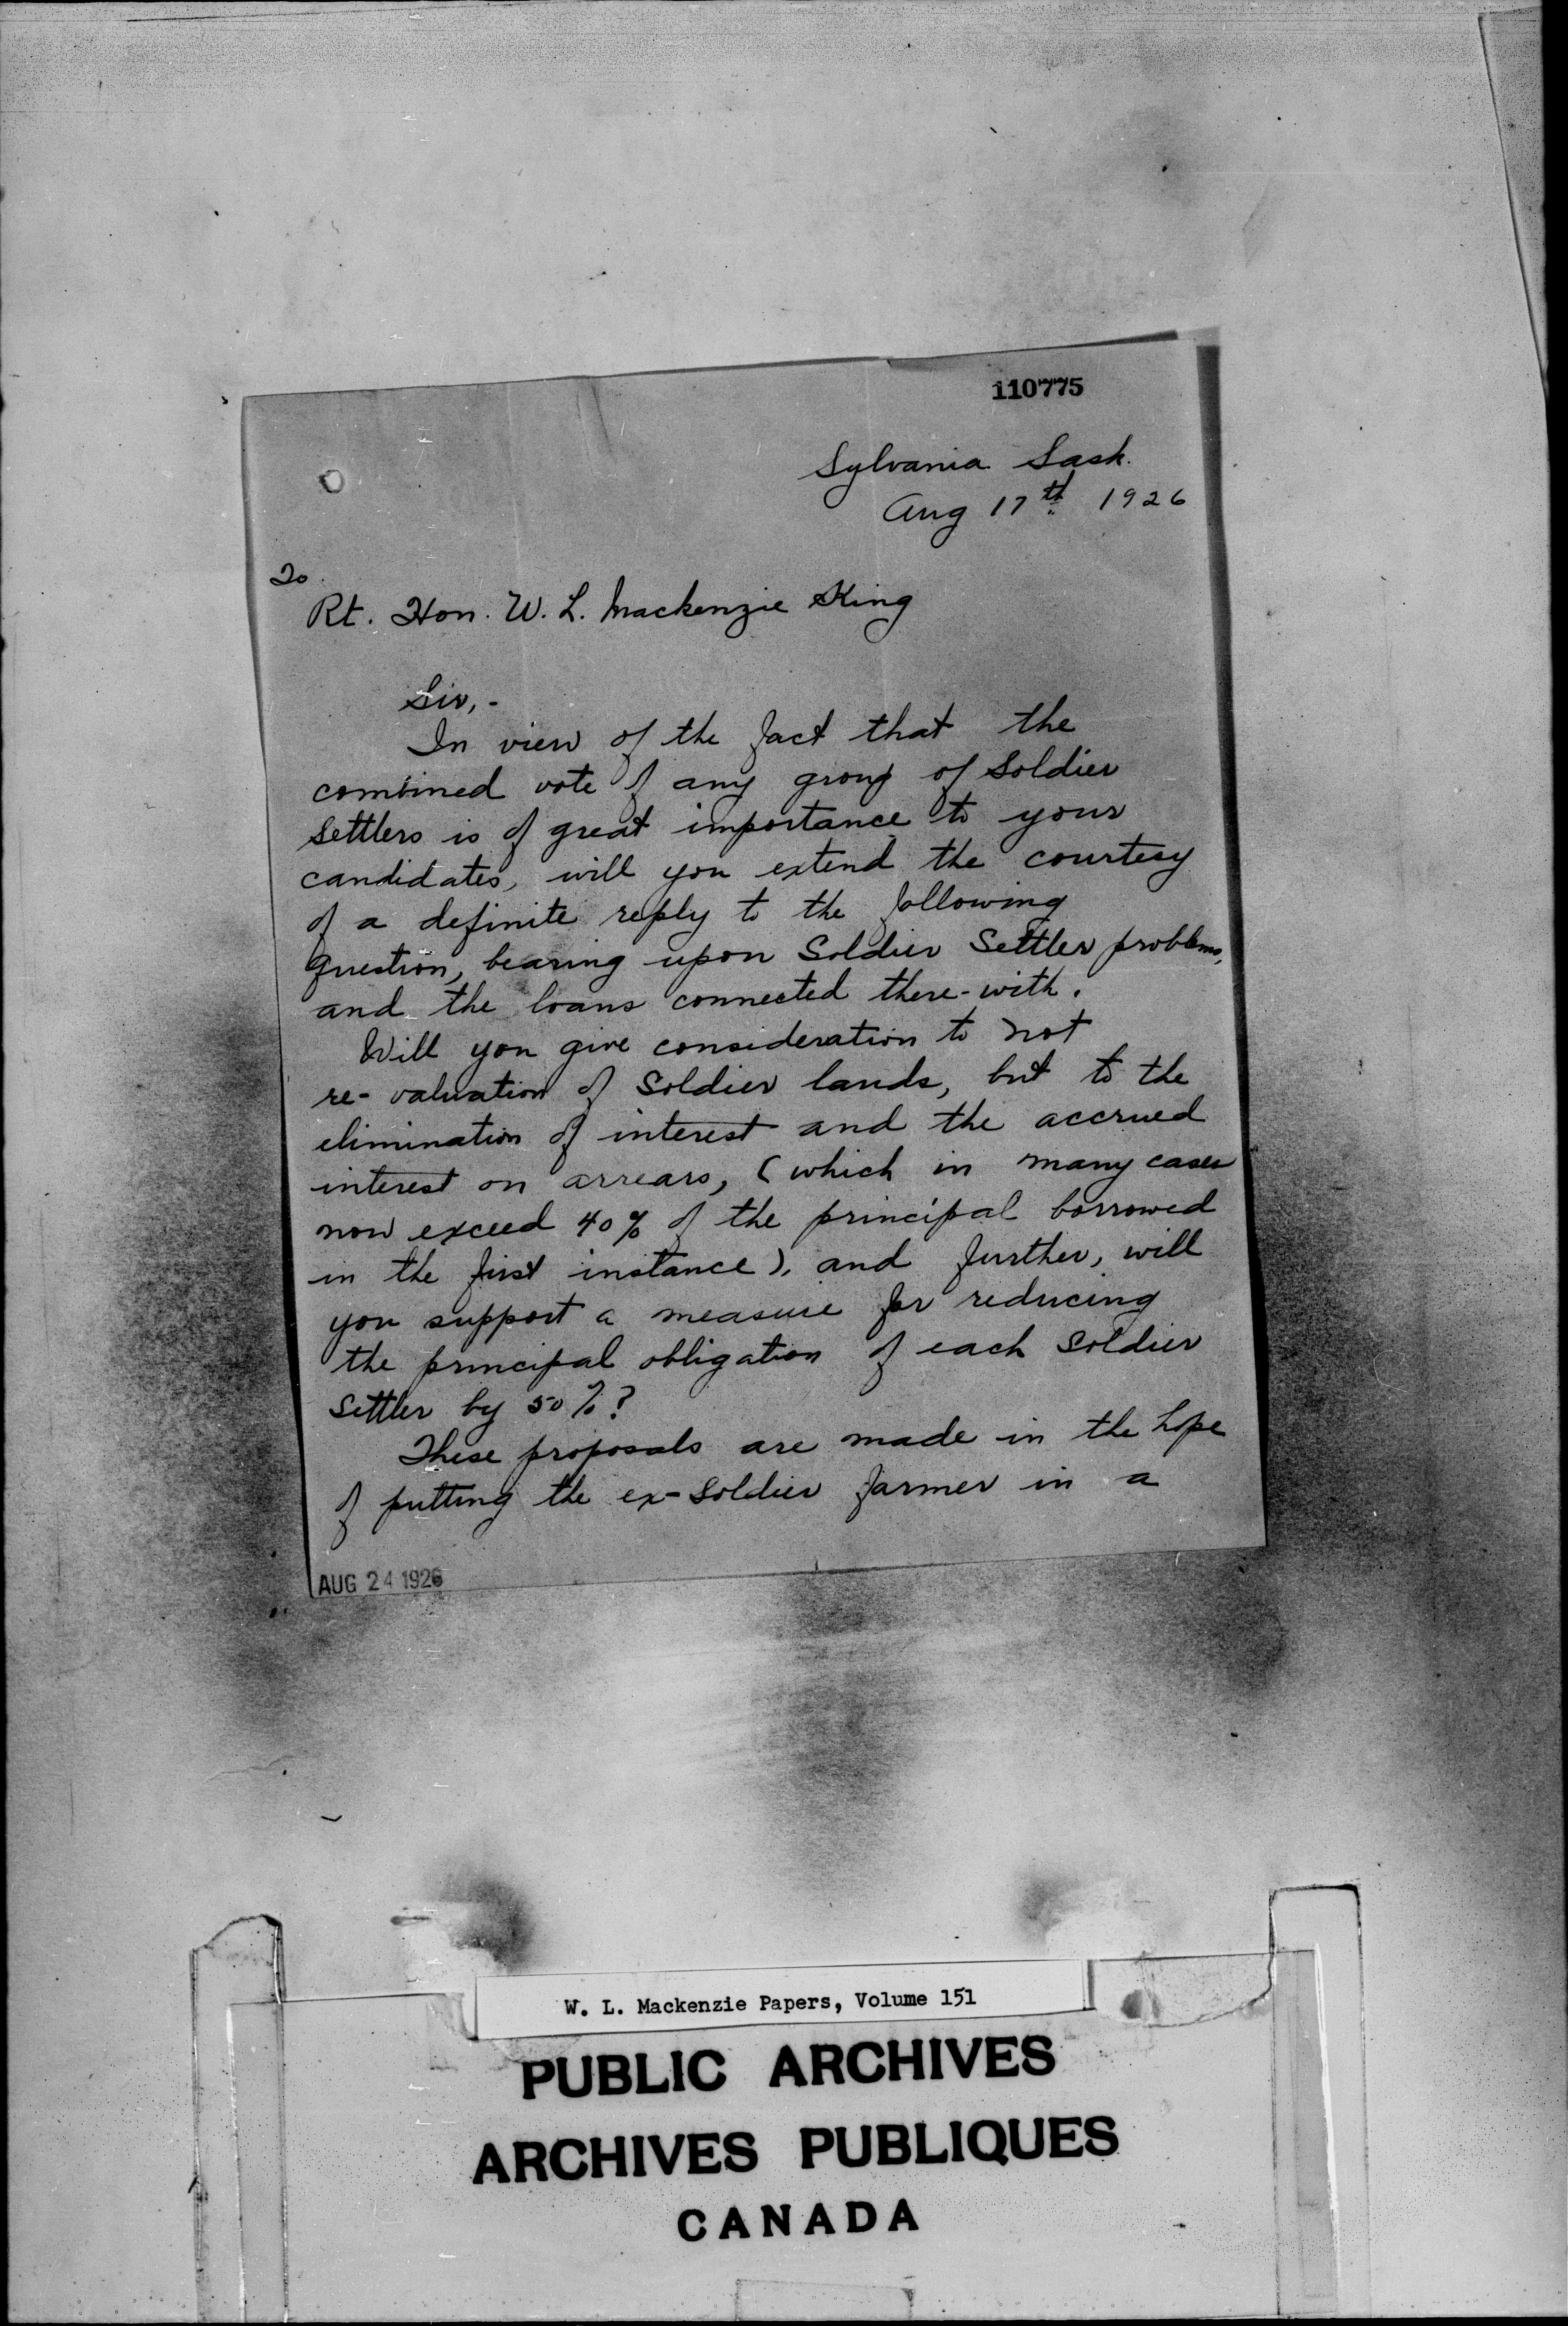 110775
Sylvania Sask.
Aug 17th 1926
To
Rt. Hon. W. L. Mackenzie King
Sir,-
In view of the fact that the
combined vote of any group of Soldier
Settlers is of great importance to your
candidates, will you extend the courtesy
of a definite reply to the following
Question, bearing upon Soldier Settler problems,
and the loans connected there-with.
Will you give consideration to not
re-valuation of Soldier lands, but to the
elimination of interest and the accrued
interest on arrears, (which in many cases
now exceed 40% of the principal borrowed
in the first instance), and further, will
you support a measure for reducing
the principal obligation of each Soldier
Settler by 50%?
These proposals are made in the hope
of putting the ex-Soldier farmer in a
AUG 24 1926
W. L. Mackenzie Papers, Volume 151
PUBLIC ARCHIVES
ARCHIVES PUBLIQUES
CANADA